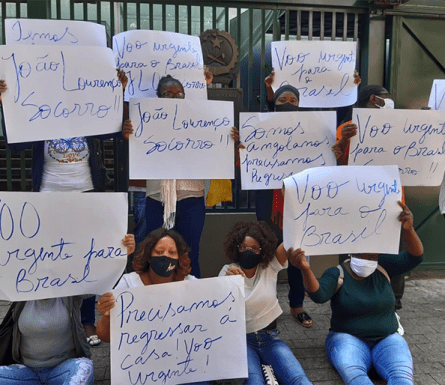 Temos
Voo urgente
para o Brasil
Voo Urgente
para
Brasil
João Lourenço
Socorro!!
João Lourenço
Socorro!!
Somos
angolanos
precisamos
Voo Urgente
para o Brasil
Voo urgente
para o
Brasil
VOO
Urgente para
Brasil
Precisamos
regressar á
casa! Voo
Urgente!